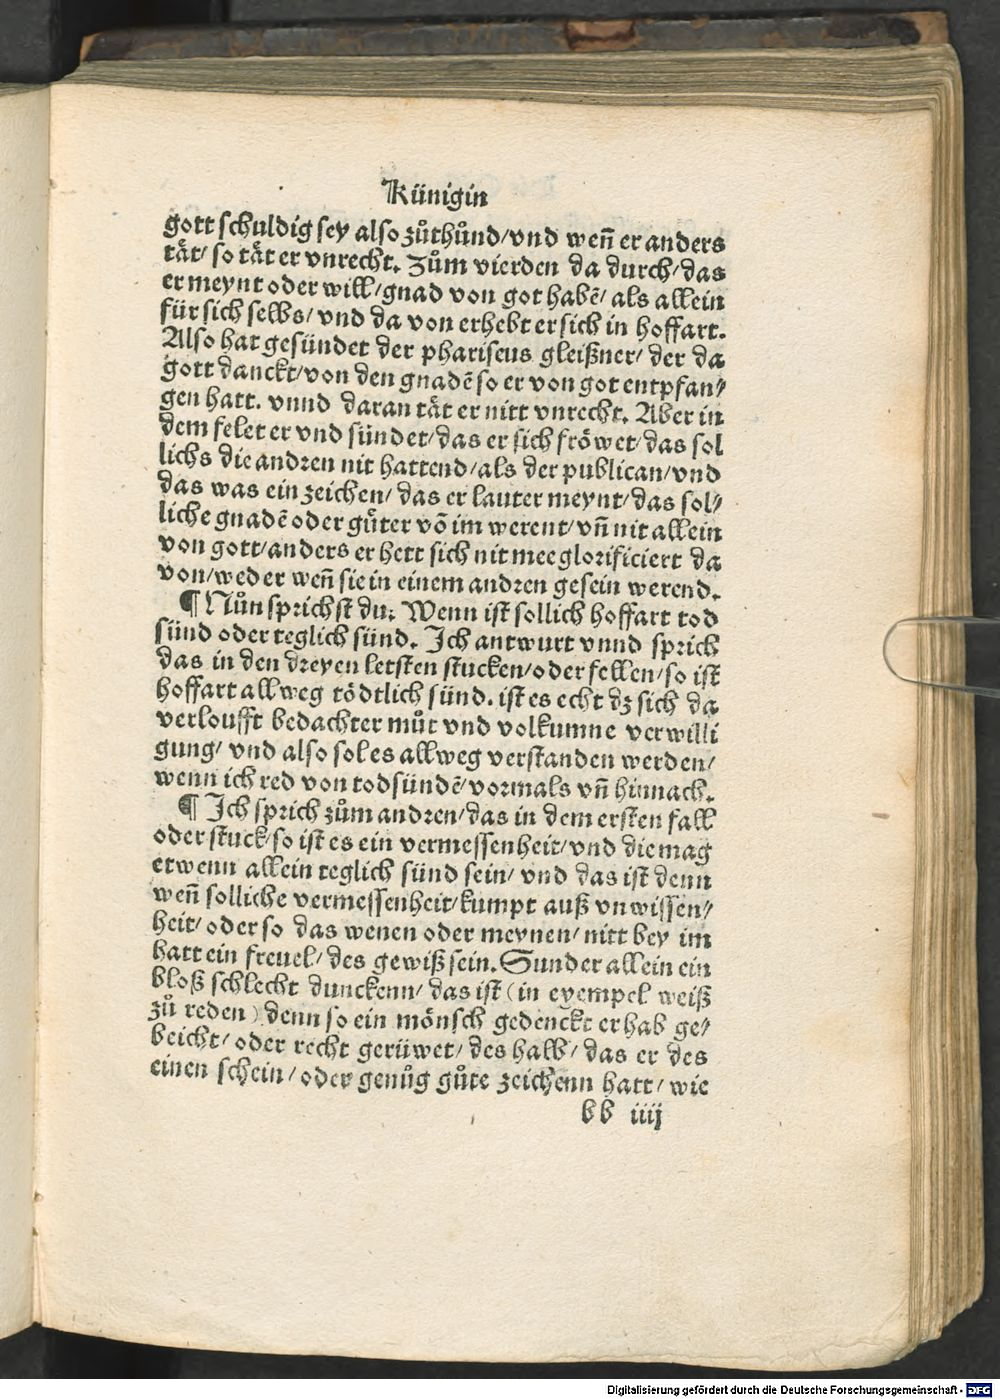 Künigin
gott schuldig sey also zůthůnd/vnd weñ er anders
tät/ so tät er vnrecht. Zům vierden da durch/das
er meynt oder will/gnad von got habē/ als allein
für sich selbs/ vnd da von erhebt er sich in hoffart.
Also hat gesündet der phariseus gleißner/ der da
gott danckt/von den gnadē so er von got entpfan⸗
gen hatt. vnnd daran tät er nitt vnrecht. Aber in
dem felet er vnd sündet/das er sich fröwet/das sol
lichs die andren nit hattend/als der publican/vnd
das was ein zeichen/ das er lauter meynt/das sol⸗
liche gnadē oder gůter vō im werent/vñ nit allein
von gott/anders er hett sich nit mee glorificiert da
von/weder weñ sie in einem andren gesein werend.
¶ Nůn sprichst du: Wenn ist sollich hoffart tod
sünd oder teglich sünd. Ich antwurt vnnd sprich
das in den dreyen letsten stucken/oder fellen/so ist
hoffart allweg tödtlich sünd. ist es echt dz sich da
verloufft bedachter můt vnd volkumne verwilli
gung/ vnd also sol es allweg verstanden werden/
wenn ich red von todsündē/vormals vñ hinnach.
¶ Ich sprich zům andren/das in dem ersten fall
oder stuck/so ist es ein vermessenheit/vnd die mag
etwenn allein teglich sünd sein/ vnd das ist denn
weñ solliche vermessenheit/kumpt auß vnwissen⸗
heit/ oder so das wenen oder meynen/ nitt bey im
hatt ein freuel/ des gewiß sein. Sunder allein ein
bloß schlecht dunckenn/ das ist (in exempel weiß
zů reden) denn so ein mönsch gedenckt er hab ge⸗
beicht/ oder recht gerüwet/ des halb/ das er des
einen schein/ oder genůg gůte zeichenn hatt/ wie
bb iiij
Digitalisierung gefördert durch die Deutsche Forschungsgemeinschaft - DFG